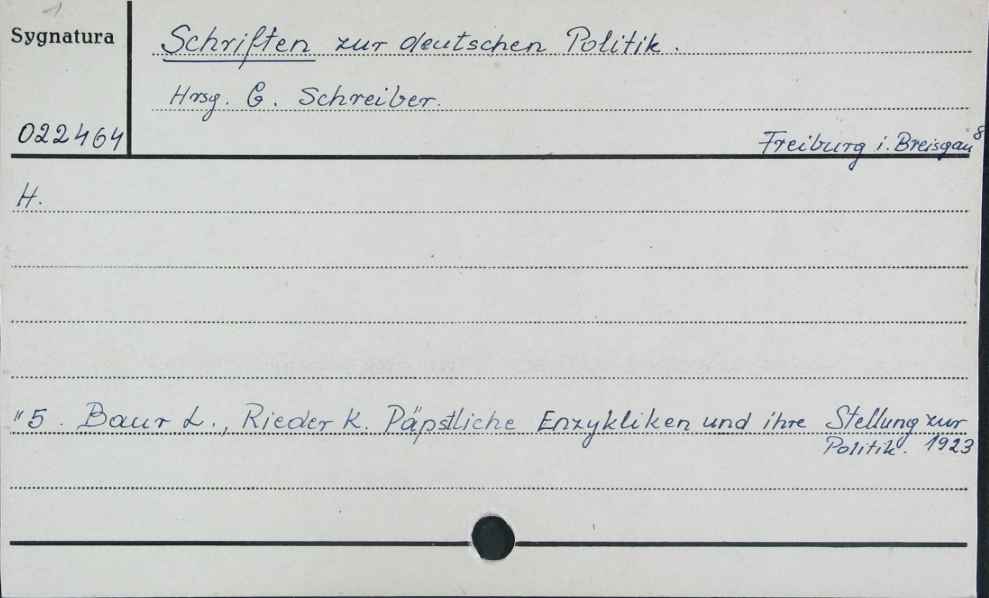 1.
Sygnatura
Schriften zur deutschen Politik.
Hrsg. G. Schreiber.
022464
Freiburg i. Breisgau 8
H.
"5. Baur L., Rieder K. Päpstliche Enzykliken und ihre Stellung zur
Politik. 1923